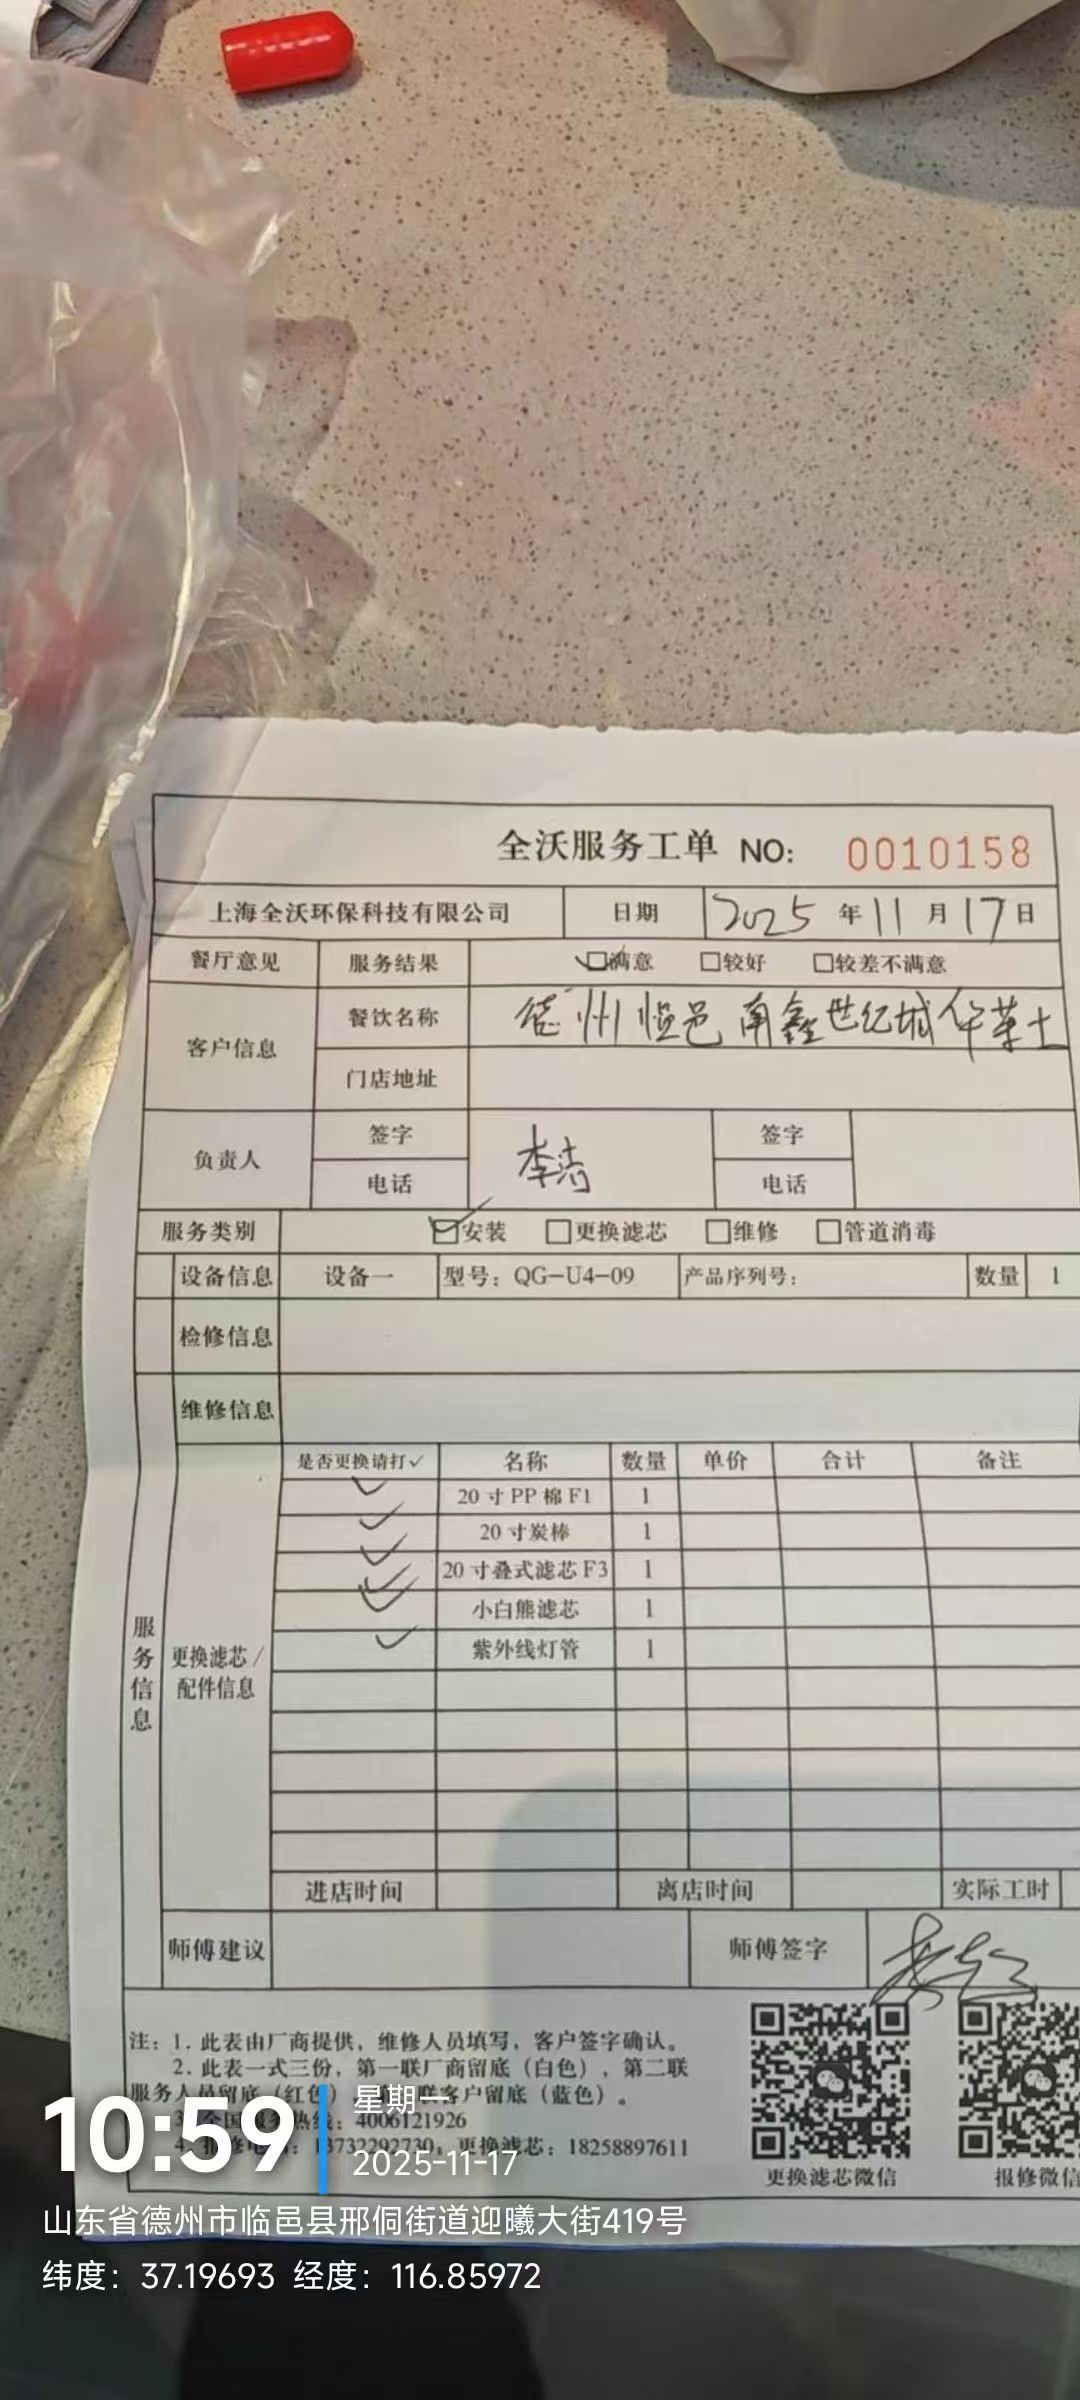 全沃服务工单 NO: 0010158
上海全沃环保科技有限公司 日期 2025年11月17日
餐厅意见 服务结果 满意 较好 较差不满意
客户信息 餐饮名称 德州临邑南鑫世纪城华莱士
门店地址
负责人 签字 李 签字
电话 电话
服务类别 安装 更换滤芯 维修 管道消毒
设备信息 设备一 型号: QG-U4-09 产品序列号: 数量 1
检修信息
维修信息
服务信息
更换滤芯/配件信息
是否更换请打✓ 名称 数量 单价 合计 备注
✓ 20寸PP棉F1 1
✓ 20寸炭棒 1
✓ 20寸叠式滤芯F3 1
✓ 小白熊滤芯 1
✓ 紫外线灯管 1
进店时间 离店时间 实际工时
师傅建议 师傅签字
注: 1. 此表由厂商提供, 维修人员填写, 客户签字确认。
2. 此表一式三份, 第一联厂商留底(白色), 第二联
服务人员留底(红色), 联客户留底(蓝色)。
3. 全国服务热线: 4006121926
4. 报修电话: 13732292730, 更换滤芯: 18258897611
更换滤芯微信 报修微信
10:59
星期一
2025-11-17
山东省德州市临邑县邢侗街道迎曦大街419号
纬度: 37.19693 经度: 116.85972